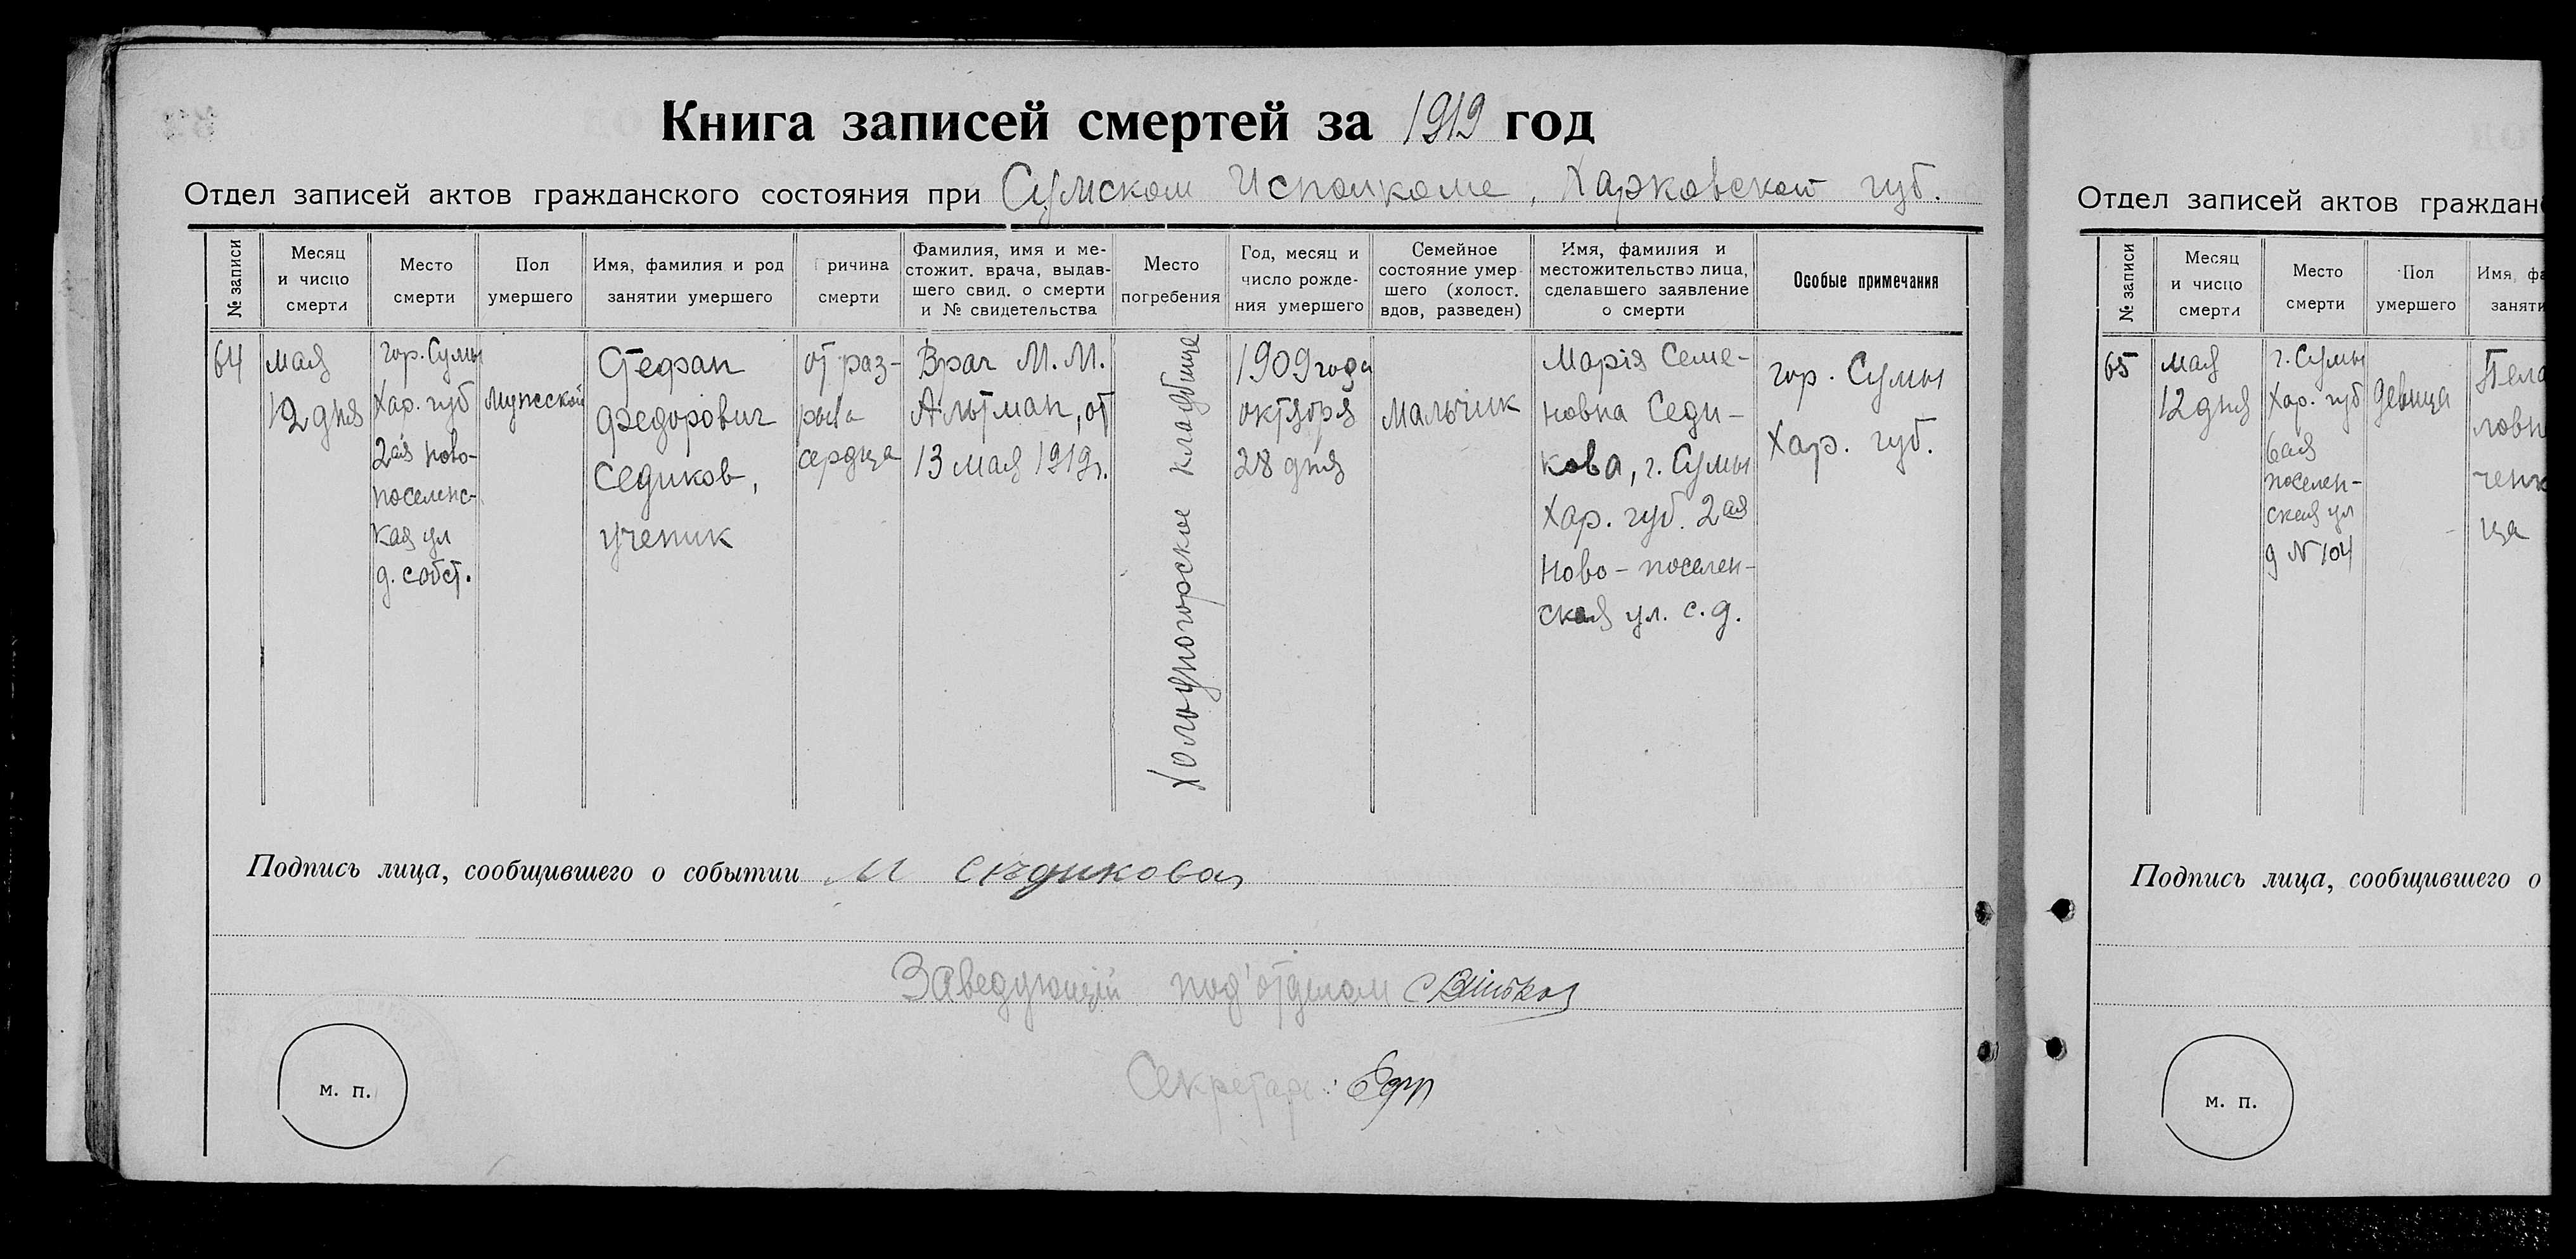 Книга записей смертей за 1919 год
Отдел записей актов гражданского состояния при Сумском Исполкоме, Харковской губ.
№ записи
Месяц
и чисцо
смерти
Место
смерти
Пол
умершего
Имя, фамилия и род
занятии умершего
Причина
смерти
Фамилия, имя и ме-
стожит. врача, выдав-
шего свид. о смерти
и № свидетельства
Место
погребения
Год, месяц и
число рожде-
ния умершего
Семейное
состояние умер-
шего (холост.
вдов, разведен)
Имя, фамилия и
местожительство лица,
сделавшего заявление
о смерти
Особые примечания
64
мая
12 дня
гор. Сумы
Хар. губ
2ая ново-
поселенс-
кая ул
д. собст.
Мужской
Стефан
Федорович
Седиков,
ученик
от раз-
рыва
сердца
Врач М. М.
Альтман, от
13 мая 1919 г.
Холодногорское кладбище
1909 года
октября
28 дня
Мальчик
Марія Семе-
новна Седи-
кова, г. Сумы
Хар. губ. 2ая
Ново-поселен-
ская ул. с. д.
гор. Сумы
Хар. губ.
Подпись лица, сообщившего о событии М Сѣдикова
Заведующій под'отделом
Секретарь:
м. п.
Отдел записей актов граждан
№ записи
Месяц
и чисцо
смерти
Место
смерти
Пол
умершего
Имя, фа
заняти
65
мая
12 дня
г. Сумы
Хар. губ
6ая
поселен-
ская ул
д № 104
девица
Пела
ловн
ченк
ца
Подпись лица, сообщившего о
м. п.